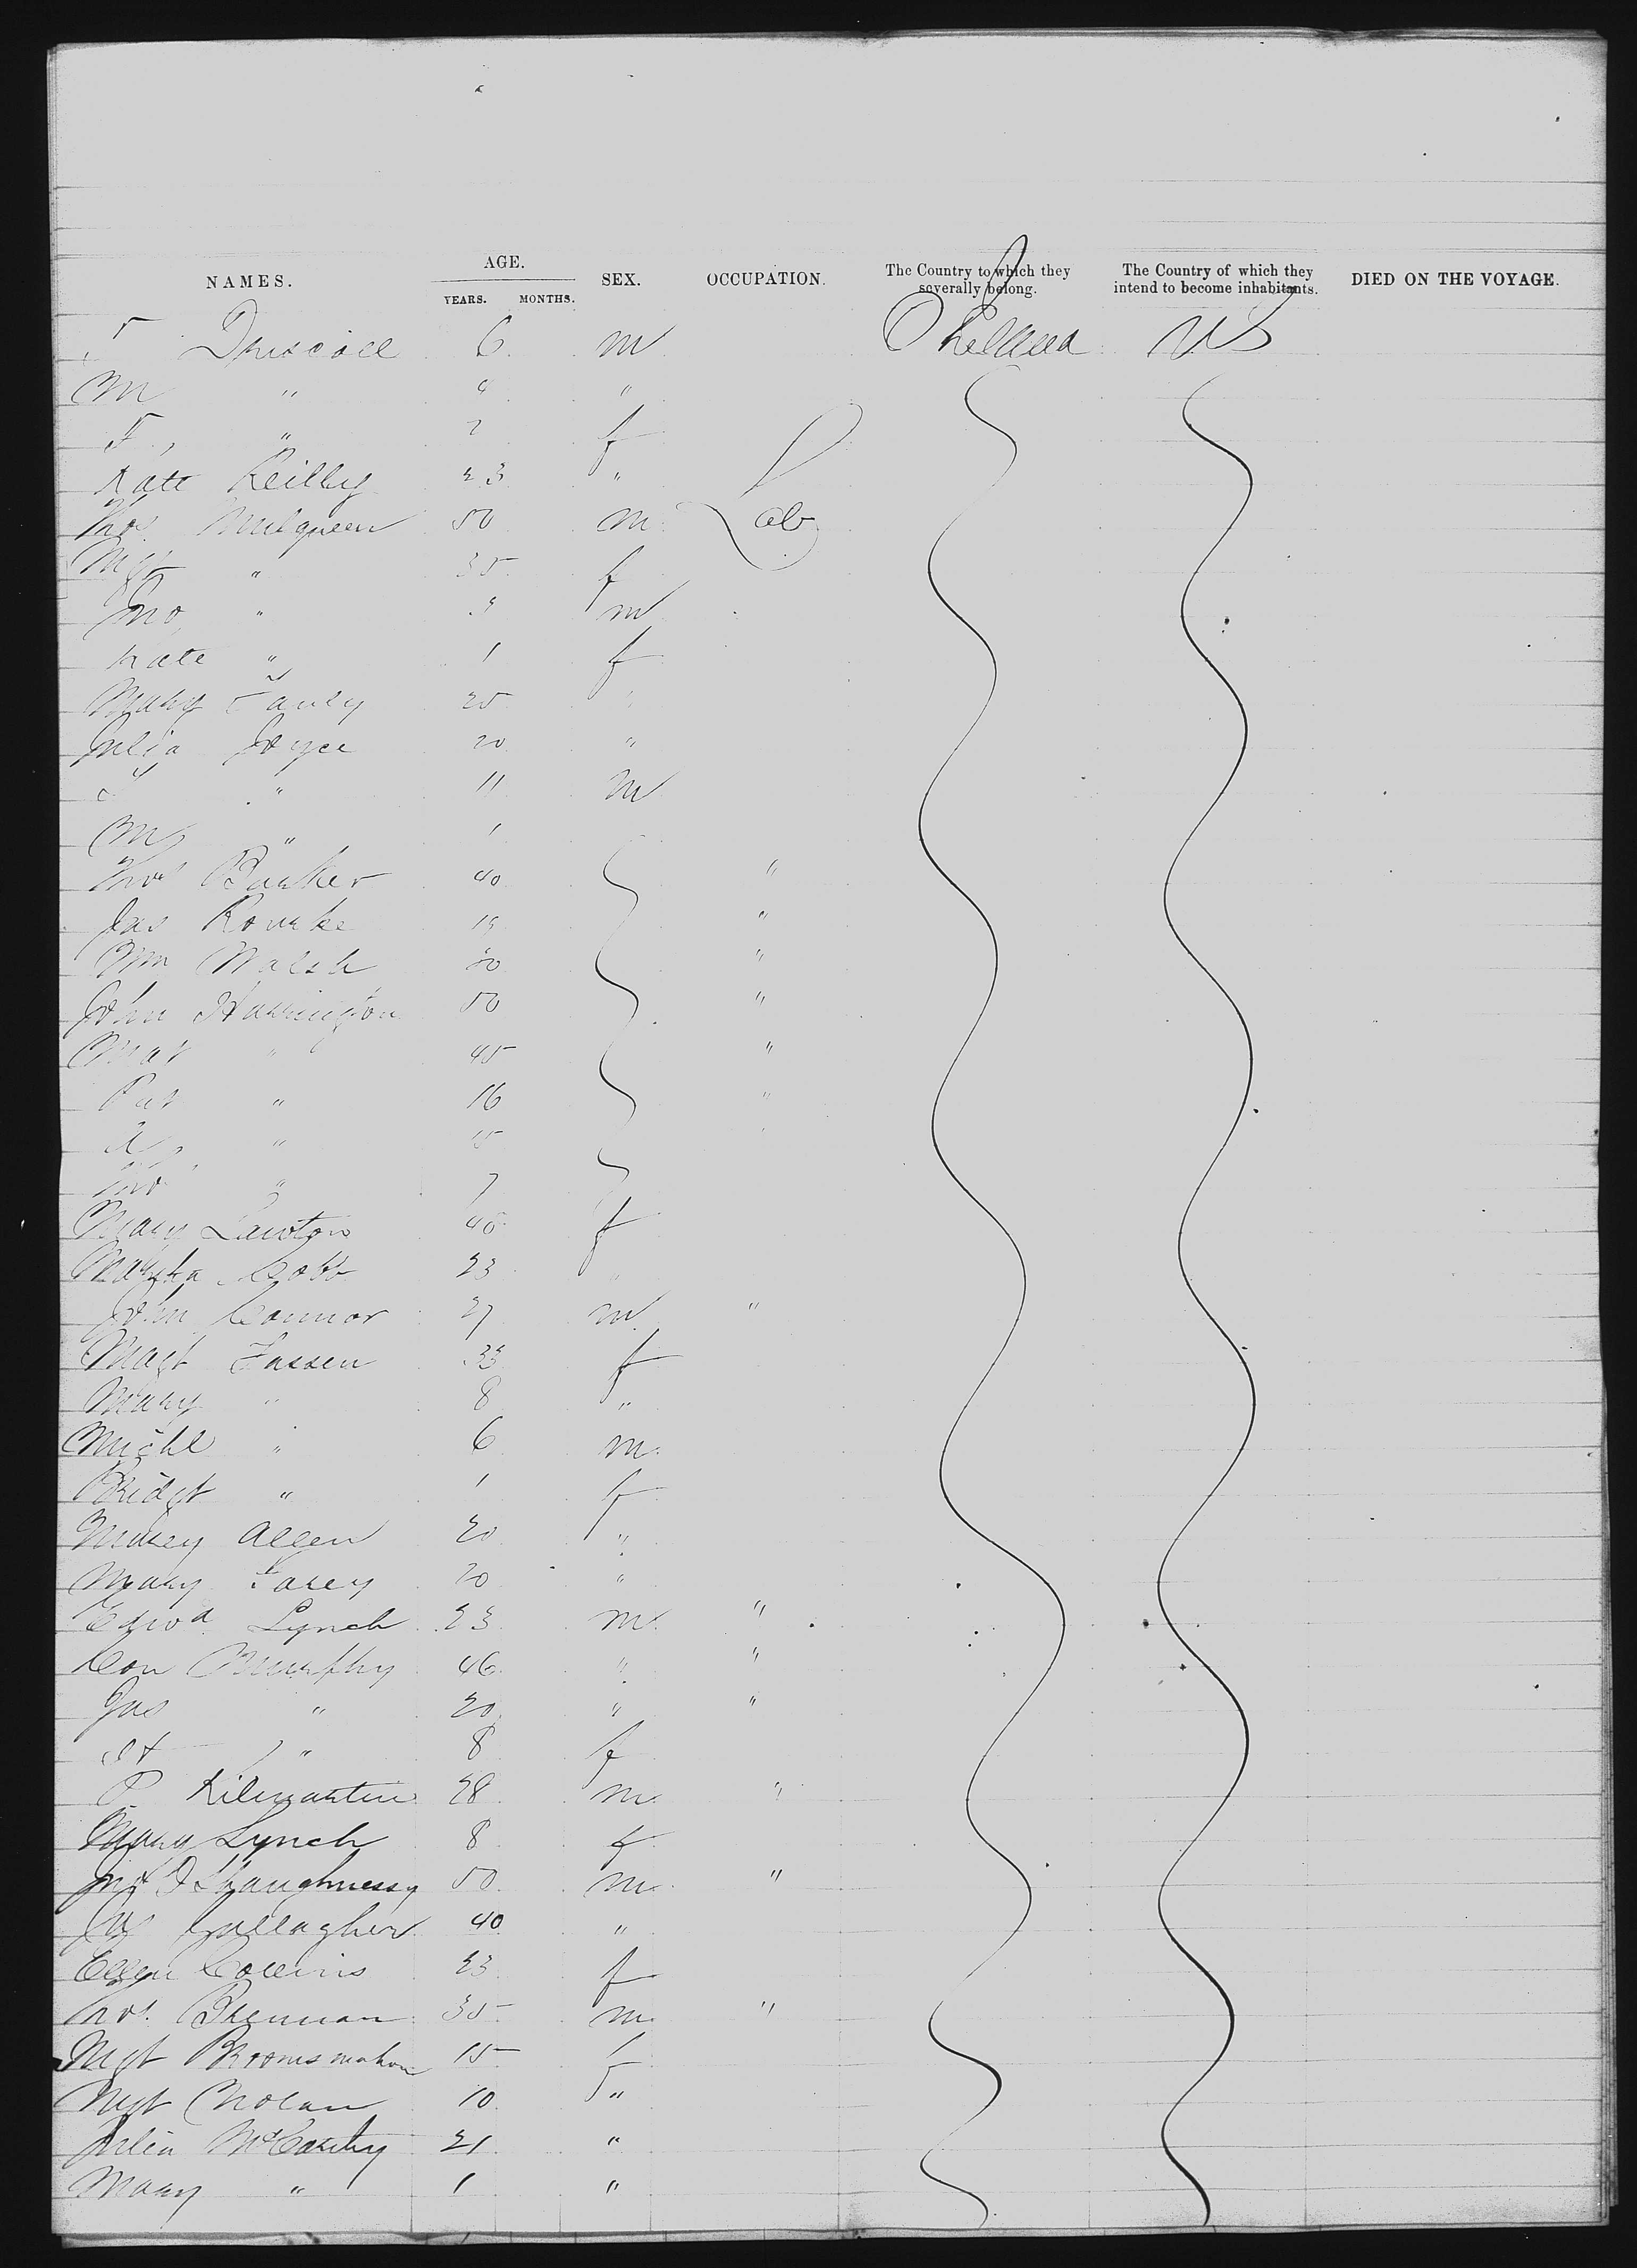 NAMES. AGE. YEARS. MONTHS. SEX. OCCUPATION. The Country to which they severally belong. The Country of which they intend to become inhabitants. DIED ON THE VOYAGE.
Driscoll 6 m Ireland US
M " 4 "
F " 2 f
Kate Reilly 23 "
Thos Mulqueen 50 m Lab
Mgt " 35 f
Jno " 3 m
Kate " 1 f
Mary 25 "
Julia Joyce 20 "
" 11 m
M " 1
Thos Barker 40 "
Jas Rourke 19 "
Wm Walsh "
John Harrington 50 "
Mar " 45 "
Pat " 16 "
" 15
" 7
Mary Lawton 45 f
Martha Cobb 23 "
John Connor 27 m "
Magt Fassen 33 f
Mary " 8 "
Michl " 6 m
Bridgt " 1 f
Allen 20 "
Mary 20 "
Edwd Lynch 23 m "
Con Murphy 46 " "
Jas " 20 " "
" 8 f
P Kilmartin 28 m "
Mary Lynch 8 f
O'Shaughnessy 50 m "
Jas Gallagher 40 "
Ellen Collins 23 f
Thos. Brennan 35 m "
Mgt 15 f
Mgt Nolan 10 "
Julia McCarthy 21 "
Mary " 1 "